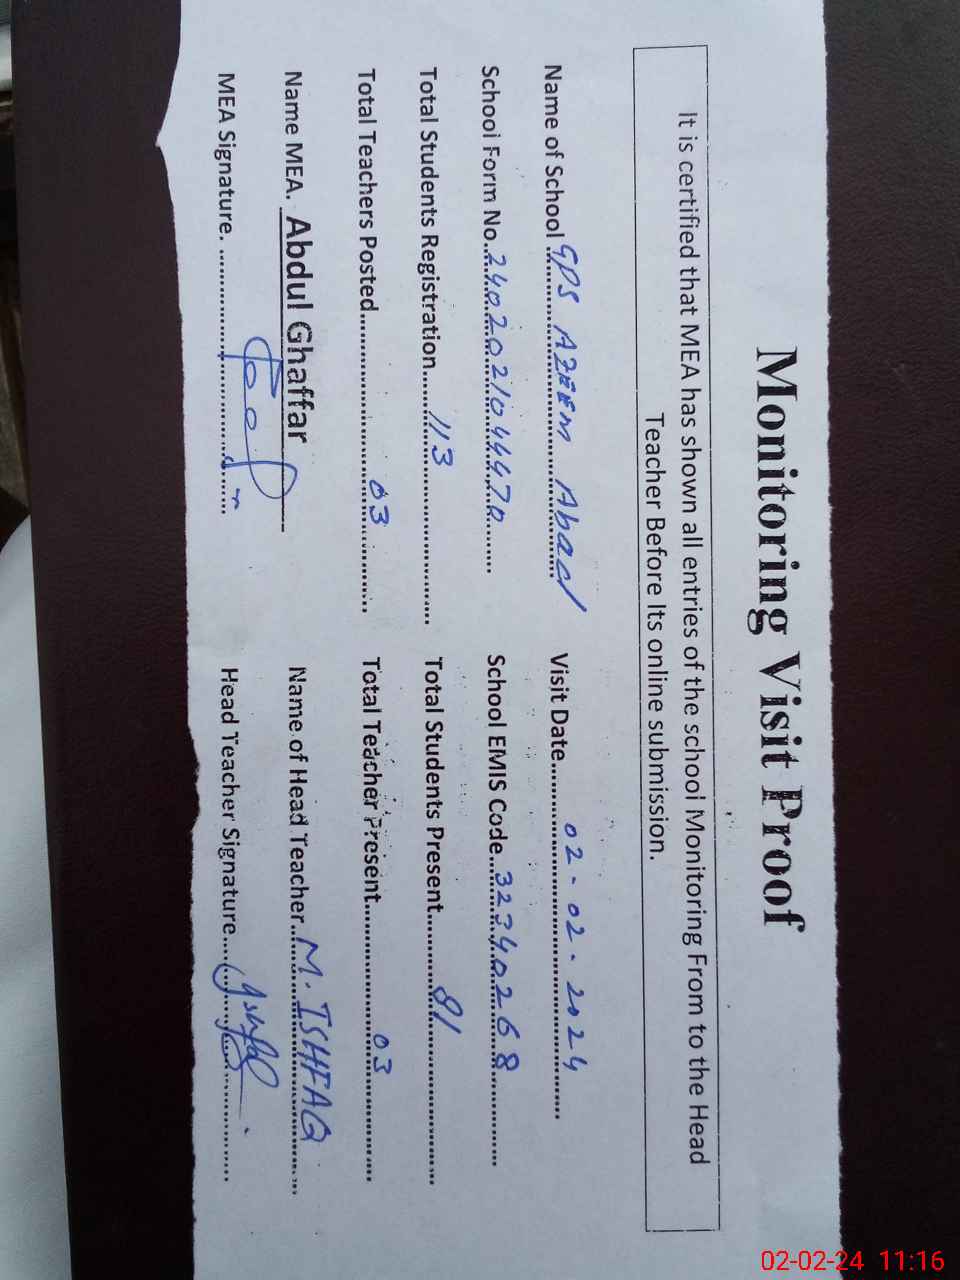 Monitoring Visit Proof
It is certified that MEA has shown all entries of the school Monitoring From to the Head
Teacher Before Its online submission.
Name of School GPS AZEEM Abad Visit Date 02-02-2024
School Form No. 2402021044470 School EMIS Code 32340268
Total Students Registration 113 Total Students Present 81
Total Teachers Posted 03 Total Teacher Present 03
Name MEA. Abdul Ghaffar Name of Head Teacher M. ISHFAQ
MEA Signature. Head Teacher Signature
02-02-24 11:16